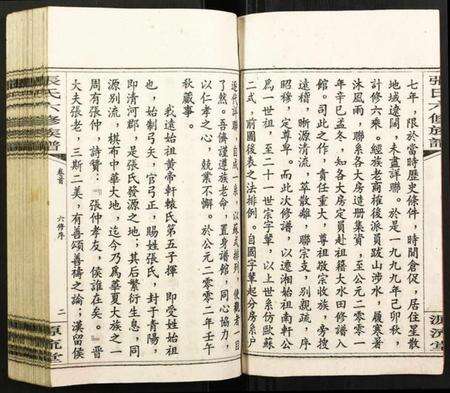 張氏六修族譜
七年，限於當時歷史條件，時間倉促，居住星散
地域遼闊，未盡詳聯。於是一九九九年己卯秋，
計修六乘。經族老商榷後派員跋山涉水，履寒暑
沐風雨，聯系各大房造册集資，至公元二〇〇一
年辛巳孟冬，知各大房定員赴祖籍大水田修譜入
館。司此之作，責任重大，尊祖敬宗收族，旁搜
遠稽，晰源清流，萃散離，聯宗支，別親疏，序
昭穆，定尊卑。而此次修譜，以遷湘始祖南軒公
爲一世祖，至二十一世宗字輩，以上世系仿歐蘇
二式，前圖後表之法排例。自國字輩起分房系户
源流堂
張氏六修族譜
卷首
六修序
二
源流堂
近代詳聯，自成一系，以蘇式排列，使觀者一目
了然。吾儕謹遵族老命，置身譜館，同心協力，
以仁孝之心，兢業不懈。於公元二〇〇二年壬午
秋蕆事。
我遠始祖黄帝軒轅氏第五子揮，即受姓始祖
也，始制弓矢，官弓正，賜姓張氏，封于青陽，
即清河郡，是張氏發源之地；其后繁衍生息，同
源别流，棋布中華大地，迄今乃爲華夏大族之一
周有張仲，詩贊：『張仲孝友，侯誰在矣。』晋
大夫張老，三斯二美，有善頌善禱之論；漢留侯